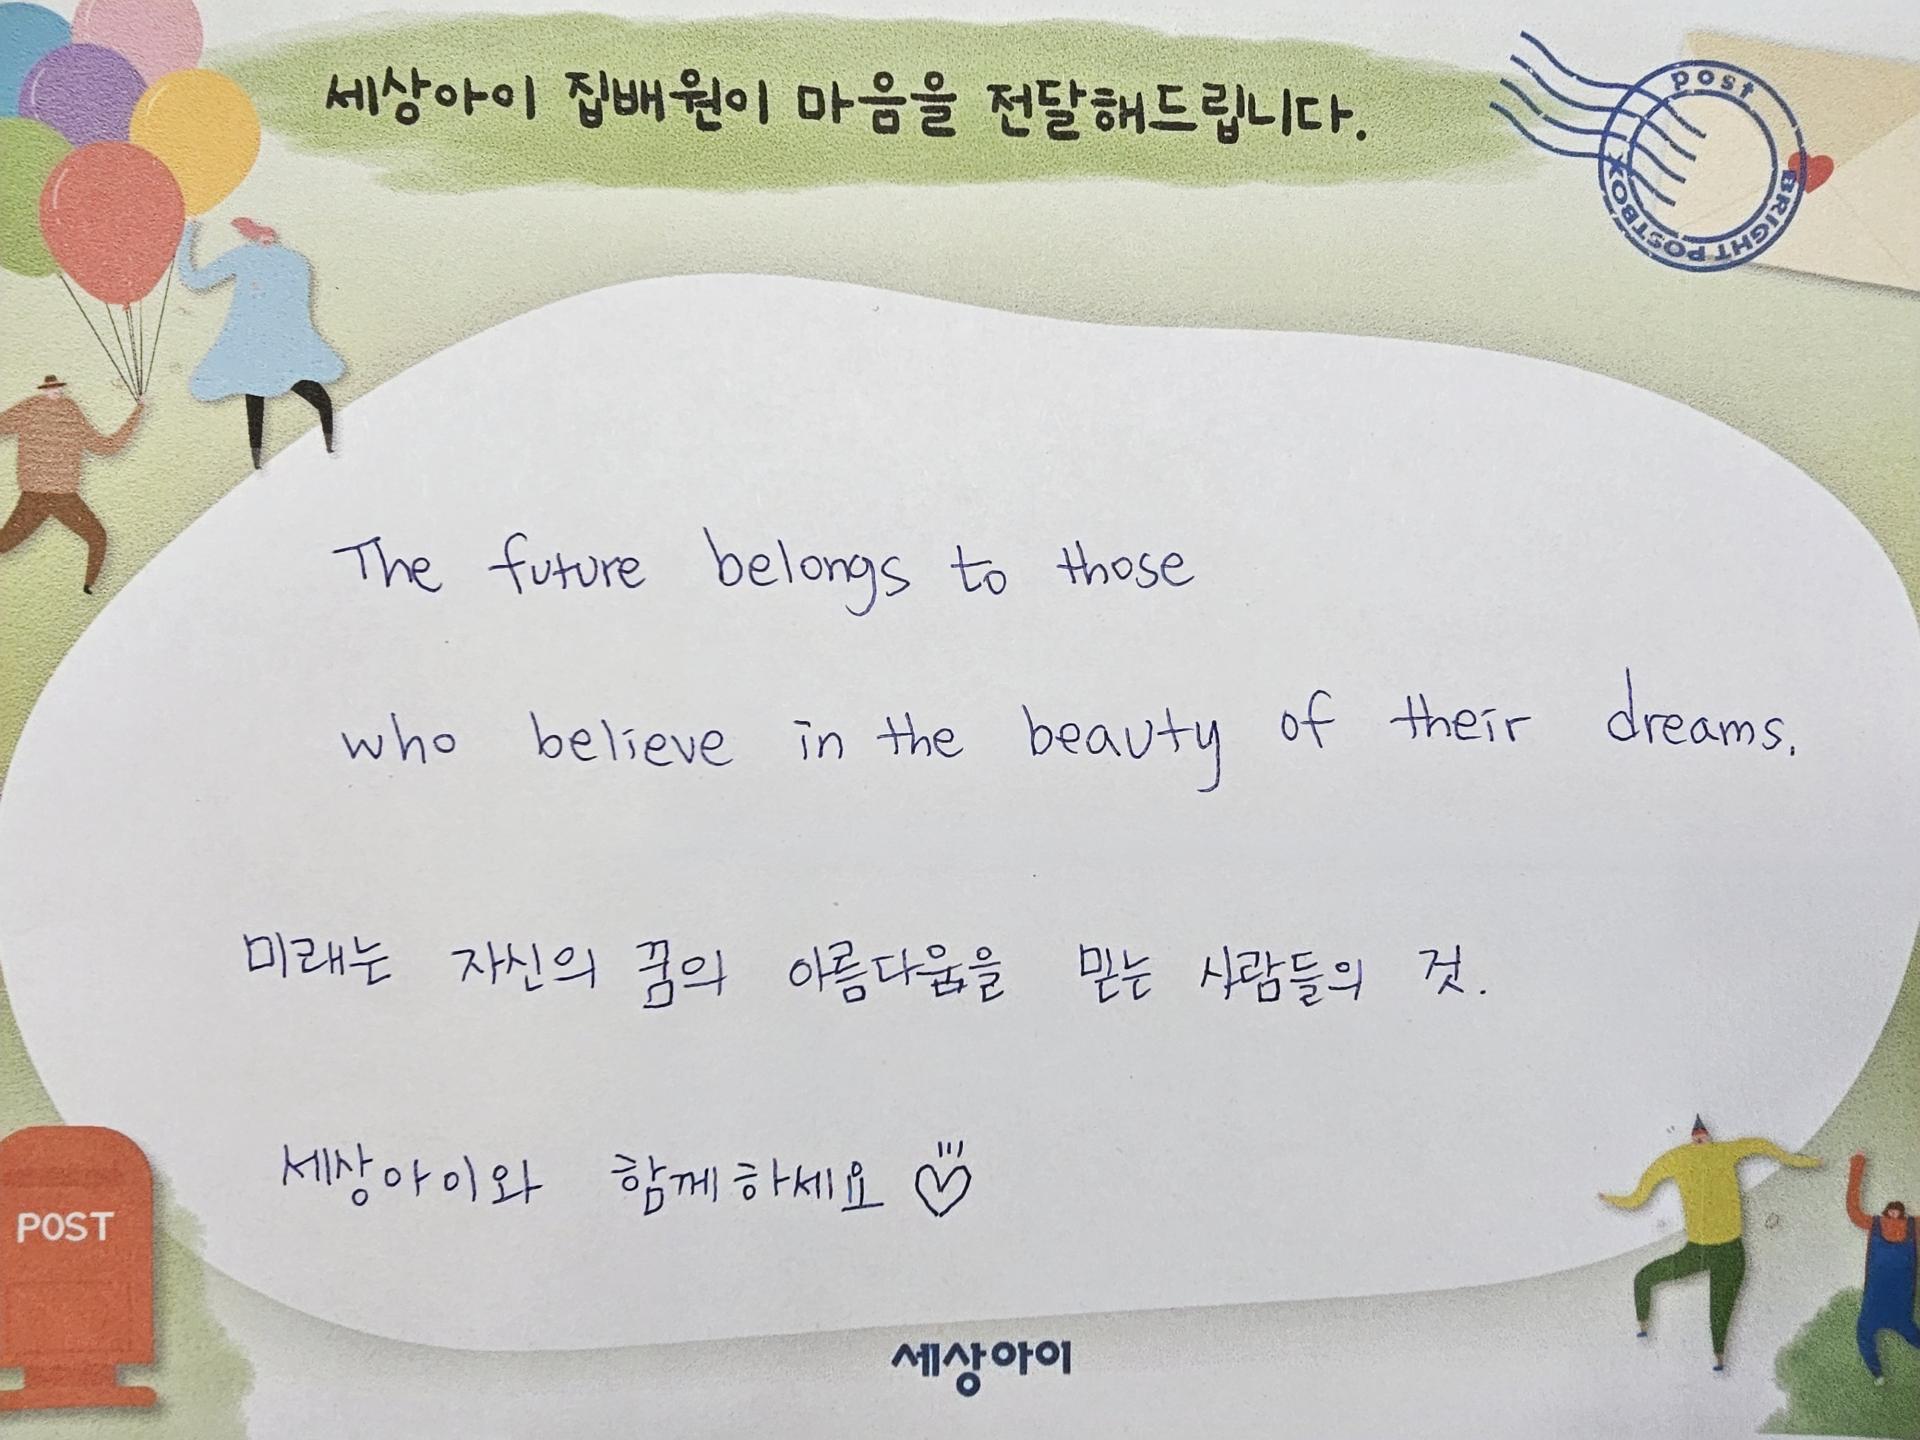 세상아이 집배원이 마음을 전달해드립니다.
post
BRIGHT POSTBOX
The future belongs to those
who believe in the beauty of their dreams.
미래는 자신의 꿈의 아름다움을 믿는 사람들의 것.
세상아이와 함께하세요 ♡
POST
세상아이